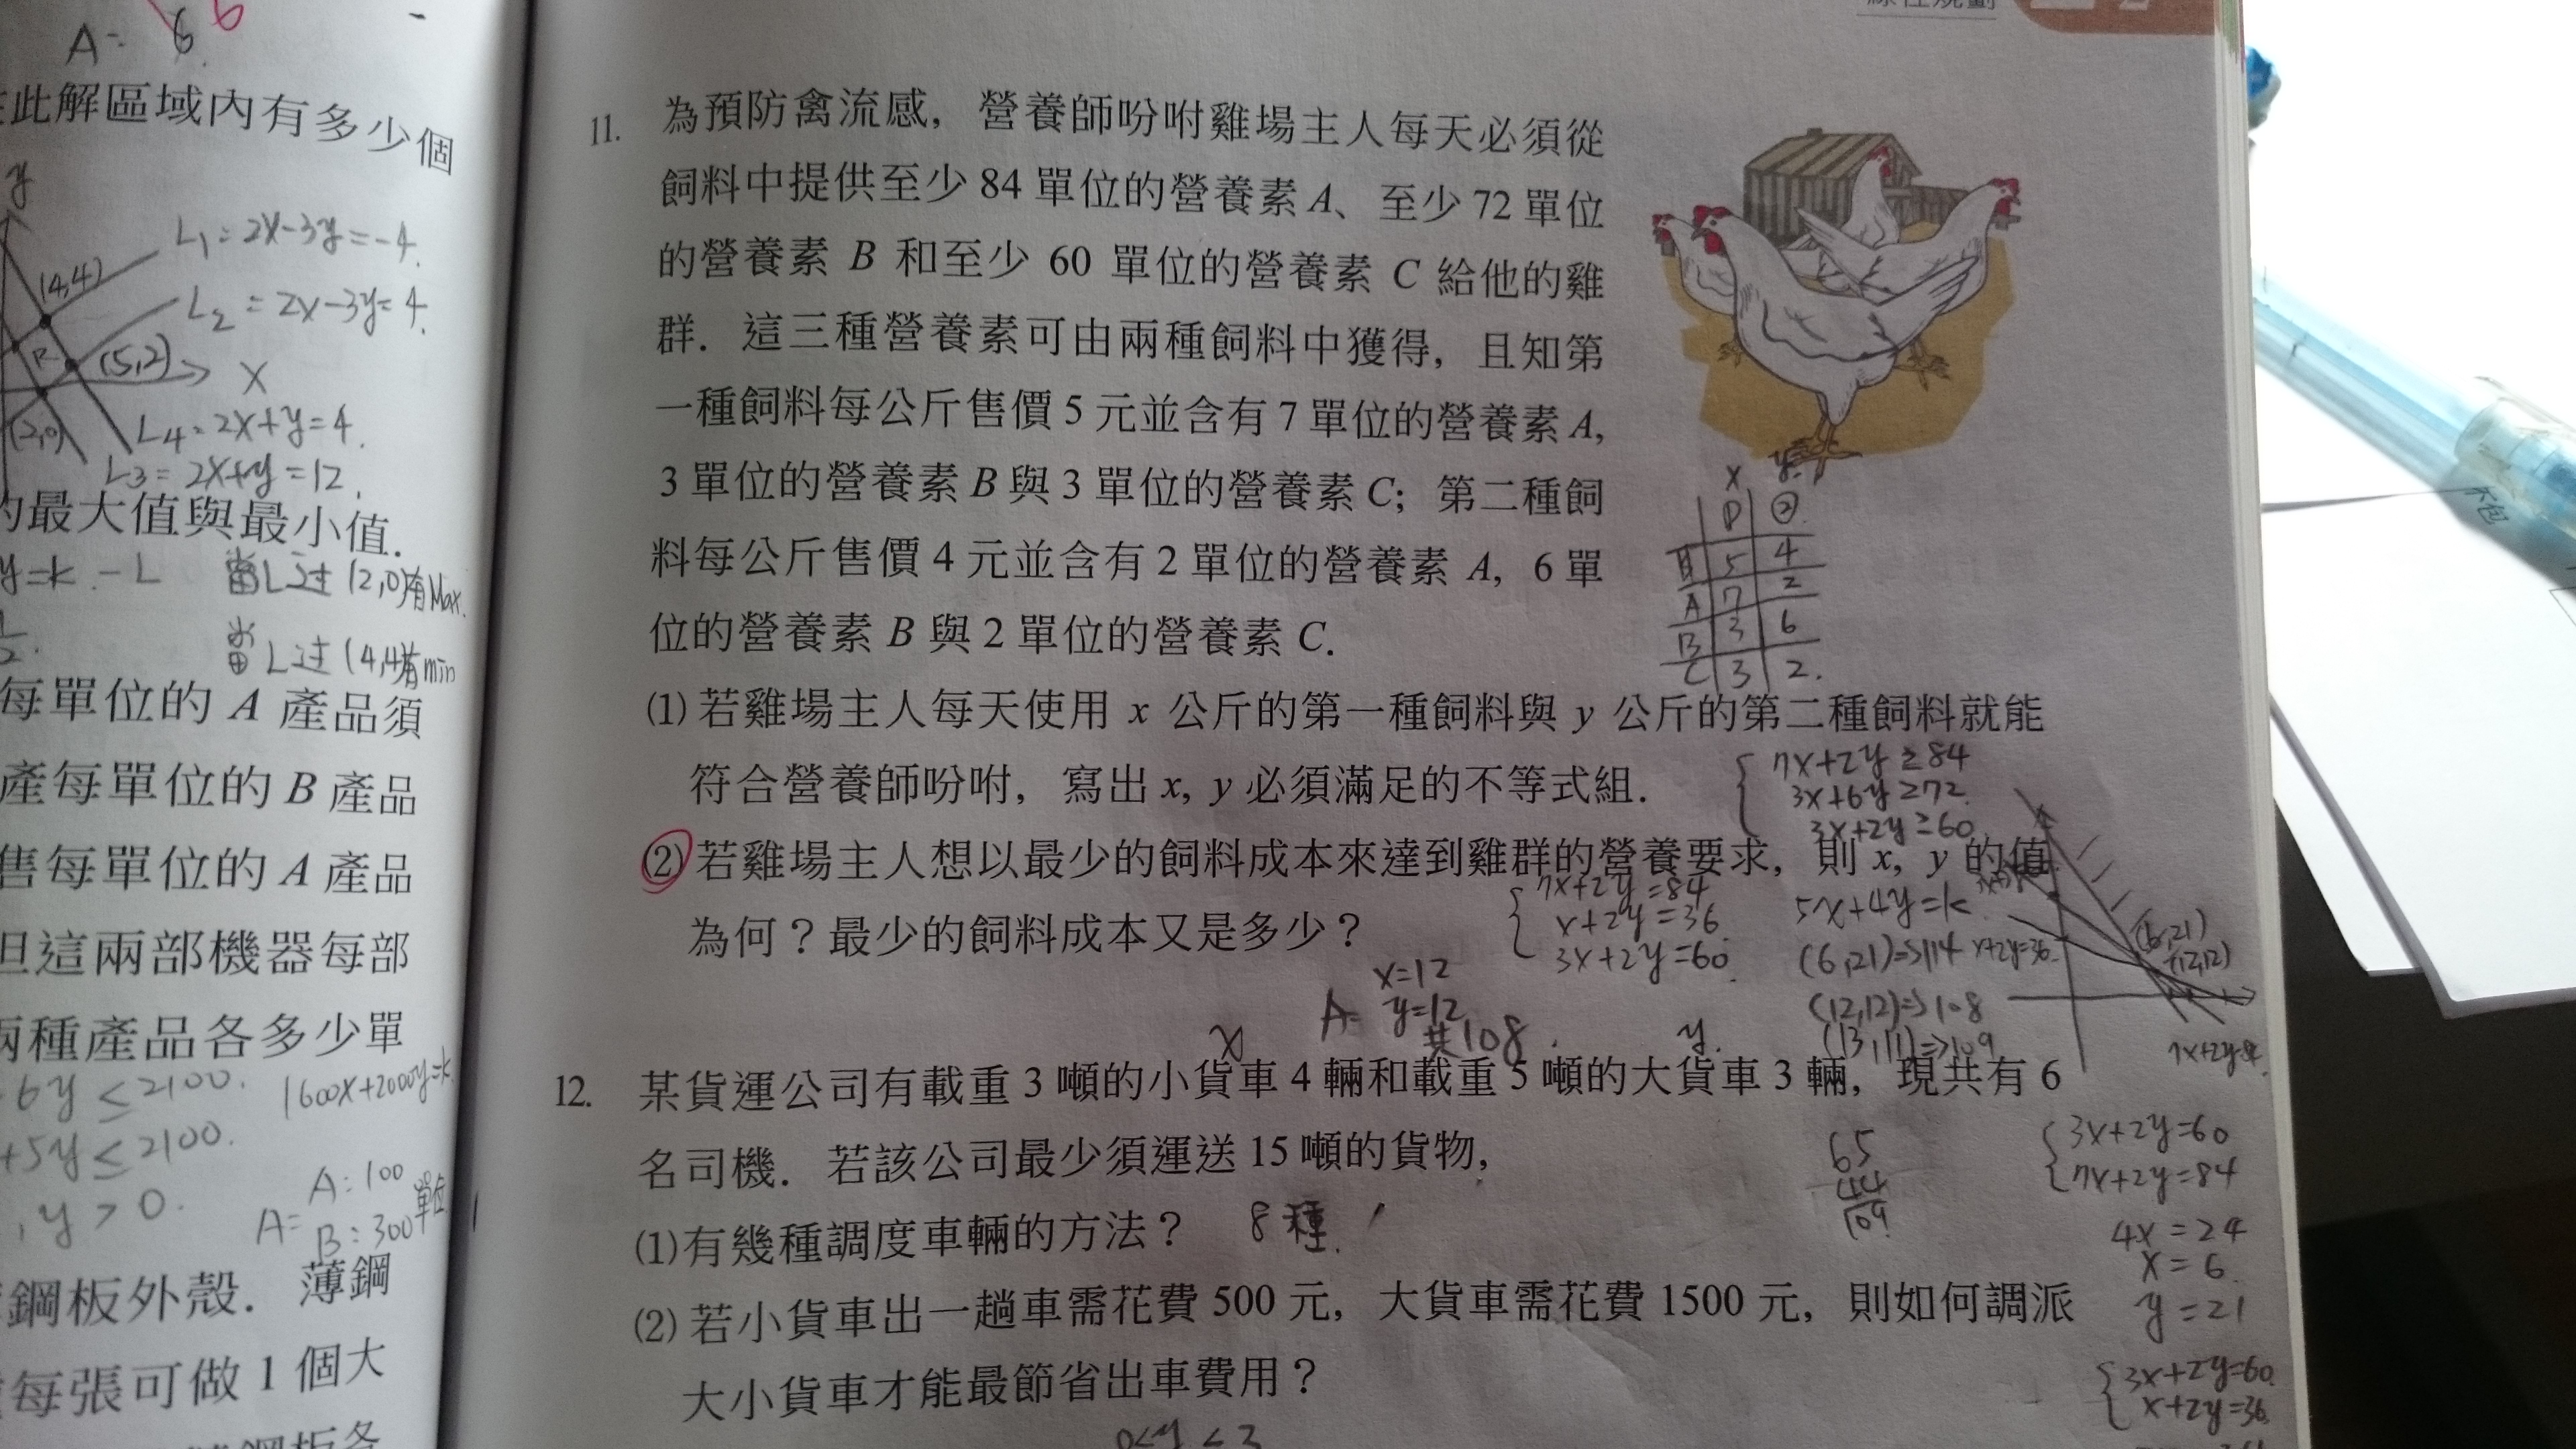 A= 6.
6
此解區域內有多少個
y
L₁=2x-3y=-4.
(4,4)
L₂=2x-3y=4.
R
(5,2)
X
(2,0)
L4=2x+y=4.
L3=2x+y=12.
的最大值與最小值.
y=k.-L
當L过(2,0)有Max.
當L过(4,4)有min
每單位的 A 產品須
產每單位的 B 產品
售每單位的 A 產品
但這兩部機器每部
兩種產品各多少單
6y≤2100.
1600x+2000y=k.
+5y≤2100.
,y>0.
A=
A:100
B:300
單位
鋼板外殼. 薄鋼
每張可做 1 個大
線性規劃
11. 為預防禽流感, 營養師吩咐雞場主人每天必須從
飼料中提供至少 84 單位的營養素 A、至少 72 單位
的營養素 B 和至少 60 單位的營養素 C 給他的雞
群. 這三種營養素可由兩種飼料中獲得, 且知第
一種飼料每公斤售價 5 元並含有 7 單位的營養素 A,
3 單位的營養素 B 與 3 單位的營養素 C; 第二種飼
料每公斤售價 4 元並含有 2 單位的營養素 A, 6 單
位的營養素 B 與 2 單位的營養素 C.
x y
② 
5 4
A 7 2
B 3 6
C 3 2.
(1) 若雞場主人每天使用 x 公斤的第一種飼料與 y 公斤的第二種飼料就能
符合營養師吩咐, 寫出 x, y 必須滿足的不等式組.
7x+2y≥84
3x+6y≥72.
3x+2y≥60
(2) 若雞場主人想以最少的飼料成本來達到雞群的營養要求, 則 x, y 的值
為何？最少的飼料成本又是多少？
7x+2y=84
x+2y=36.
3x+2y=60.
5x+4y=k.
(6,21)=>114
(12,12)=>108
(13,11)=>109
x+2y=36.
(6,21)
(12,12)
7x+2y=84.
A= x=12
y=12
共108.
x
y.
12. 某貨運公司有載重 3 噸的小貨車 4 輛和載重 5 噸的大貨車 3 輛, 現共有 6
名司機. 若該公司最少須運送 15 噸的貨物,
65
44
109.
(1)有幾種調度車輛的方法？ 8種.
(2) 若小貨車出一趟車需花費 500 元, 大貨車需花費 1500 元, 則如何調派
大小貨車才能最節省出車費用？
3x+2y=60
7x+2y=84
4x=24
x=6.
y=21
3x+2y=60.
x+2y=36.